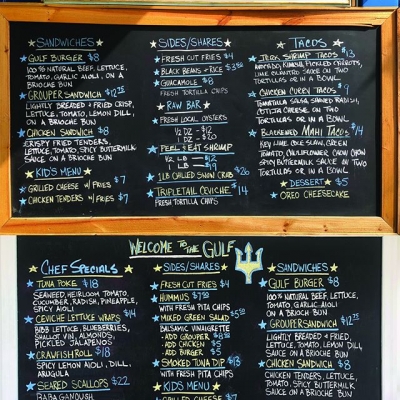 SANDWICHES
GULF BURGER $8
100% NATURAL BEEF, LETTUCE,
TOMATO, GARLIC AIOLI, ON A
BRIOCHE BUN
GROUPER SANDWICH $12.75
LIGHTLY BREADED & FRIED CRISP,
LETTUCE, TOMATO, LEMON DILL,
ON A BRIOCHE BUN
CHICKEN SANDWICH $8
CRISPY FRIED TENDERS,
LETTUCE, TOMATO, SPICY BUTTERMILK
SAUCE ON A BRIOCHE BUN
KID'S MENU
GRILLED CHEESE W/ FRIES $7
CHICKEN TENDERS W/ FRIES $7
SIDES/SHARES
FRESH CUT FRIES $4
BLACK BEANS + RICE $3.50
GUACAMOLE $8
FRESH TORTILLA CHIPS
RAW BAR
FRESH LOCAL OYSTERS
1/2 DZ - $12
1 DZ - $20
PEEL & EAT SHRIMP
1/2 LB - $12
1 LB - $19
1LB CHILLED SNOW CRAB $26
TRIPLETAIL CEVICHE $14
FRESH TORTILLA CHIPS
TACOS
JERK SHRIMP TACOS $13
AVOCADO, KIMCHI, PICKLED CARROTS,
LIME BURNT TO SAUCE ON TWO
TORTILLAS OR IN A BOWL
CHICKEN CURRY TACOS $9
TOMATILLA SALSA, SHAVED RADISH,
COTIJA CHEESE, ON TWO
TORTILLAS OR IN A BOWL
BLACKENED MAHI TACOS $14
KEY LIME COLE SLAW, GREEN
TOMATO, CAULIFLOWER CHOW CHOW
SPICY BUTTERMILK SAUCE ON TWO
TORTILLAS OR IN A BOWL
DESSERT $5
OREO CHEESECAKE
WELCOME TO THE GULF
CHEF SPECIALS
TUNA POKE $18
SEAWEED, HEIRLOOM TOMATO,
CUCUMBER, RADISH, PINEAPPLE,
SPICY AIOLI
CEVICHE LETTUCE WRAPS $14
BIBB LETTUCE, BLUEBERRIES,
SHALLOT VIN, ALMONDS,
PICKLED JALAPENOS
CRAWFISH ROLL $18
SPICY LEMON AIOLI, DILL,
ARUGULA
SEARED SCALLOPS $22
BABA GANOUSH,
SIDES/SHARES
FRESH CUT FRIES $4
HUMMUS $7.50
WITH FRESH PITA CHIPS
MIXED GREEN SALAD $5.50
BALSAMIC VINAIGRETTE
- ADD GROUPER $8.50
- ADD CHICKEN $5
- ADD BURGER $5
SMOKED TUNA DIP $13
WITH FRESH PITA CHIPS
KIDS MENU
GRILLED CHEESE $7
SANDWICHES
GULF BURGER $8
100% NATURAL BEEF, LETTUCE,
TOMATO, GARLIC AIOLI
ON A BRIOCHE BUN
GROUPER SANDWICH $12.75
LIGHTLY BREADED + FRIED,
LETTUCE, TOMATO, LEMON DILL,
SAUCE ON A BRIOCHE BUN
CHICKEN SANDWICH $8
CHICKEN TENDERS, LETTUCE,
TOMATO, SPICY BUTTERMILK
SAUCE ON A BRIOCHE BUN